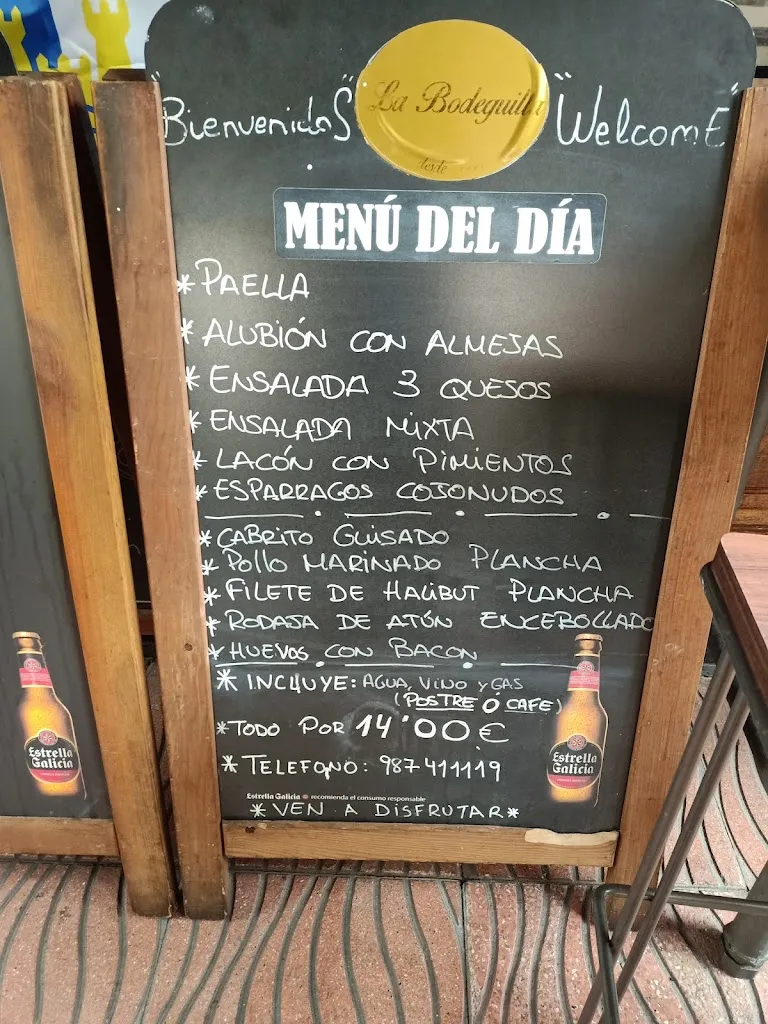 "Bienvenidos"
La Bodeguilla
desde
"WelcomE"
MENÚ DEL DÍA
*PAELLA
*ALUBIÓN CON ALMEJAS
*ENSALADA 3 QUESOS
*ENSALADA MIXTA
*LACÓN CON PIMIENTOS
*ESPARRAGOS COJONUDOS
*CABRITO GUISADO
*POllO MARINADO PLANCHA
*FILETE DE HALIBUT PLANCHA
*RODAJA DE ATÚN ENCEBOLLADO
*HUEVOS CON BACON
*INCLUYE: AGUA, VINO Y GAS
(POSTRE Ó CAFE)
*TODO POR 14'00€
*TELEFONO: 987411119
Estrella Galicia recomienda el consumo responsable
*VEN A DISFRUTAR*
Estrella Galicia
Estrella Galicia